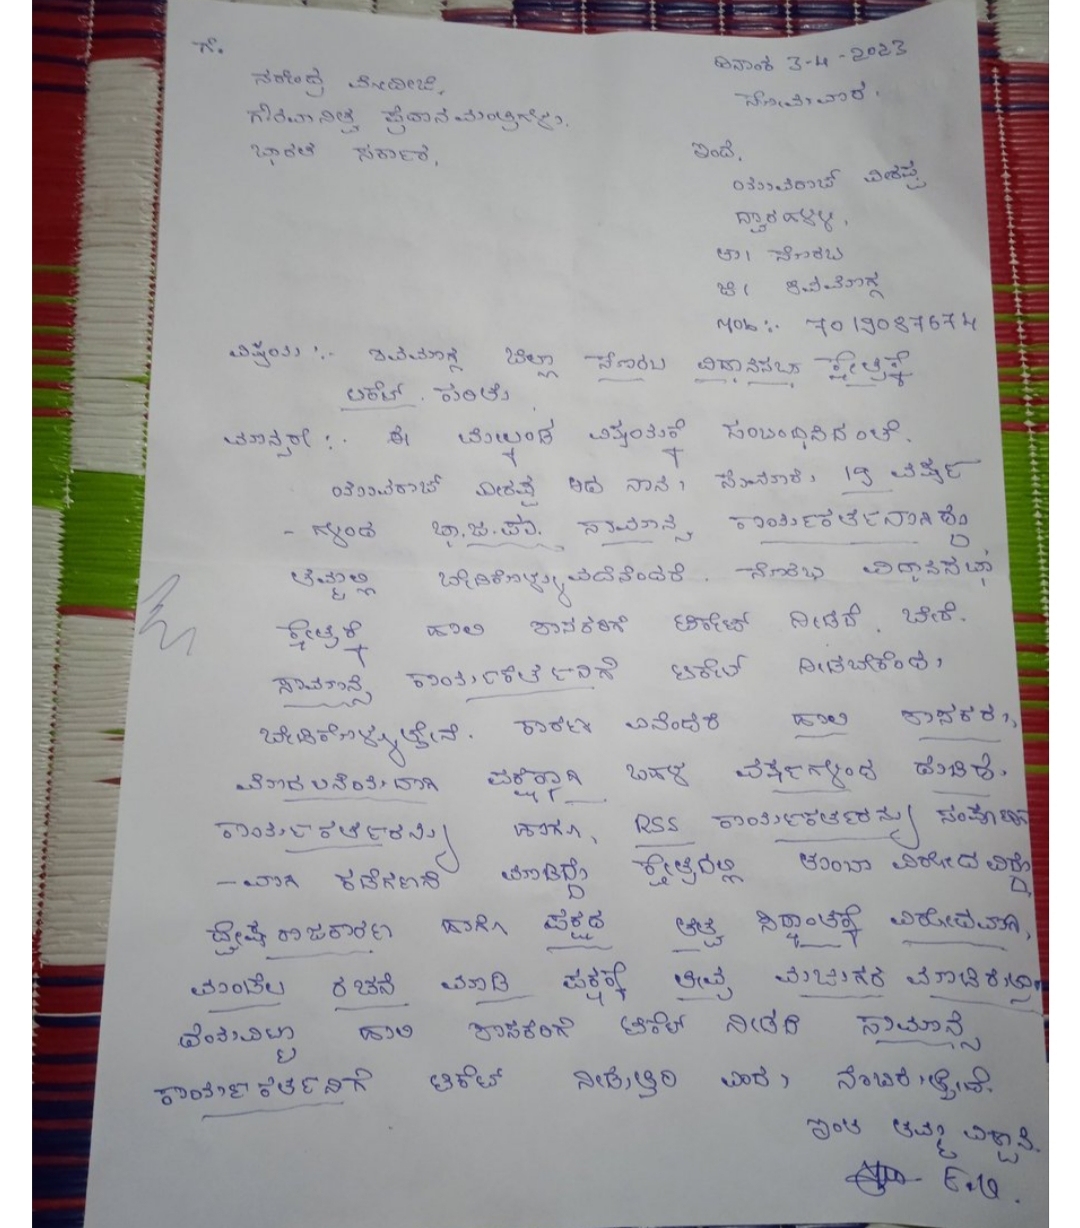 ಗೆ.
ದಿನಾಂಕ 3-4-2023
ನರೇಂದ್ರ ಮೋದೀಜಿ.
ಸೋಮವಾರ.
ಗೌರವಾನಿತ್ವ ಪ್ರಧಾನ ಮಂತ್ರಿಗಳು.
ಭಾರತ ಸರ್ಕಾರ.
ಇಂದ.
ಯುವರಾಜ್ ವೀರಪ್ಪ
ದ್ವಾರಹಳ್ಳಿ.
ತಾ। ಸೊರಬ
ಜಿ। ಶಿವಮೊಗ್ಗ
Mob:- 7019087674
ವಿಷಯ :- ಶಿವಮೊಗ್ಗ ಜಿಲ್ಲಾ ಸೊರಬ ವಿಧಾನಸಭಾ ಕ್ಷೇತ್ರಕ್ಕೆ
ಟಿಕೆಟ್ ಕುರಿತು.
ಮಾನ್ಯರೇ :- ಈ ಮೇಲ್ಕಂಡ ವಿಷಯಕ್ಕೆ ಸಂಬಂಧಿಸಿದಂತೆ.
ಯುವರಾಜ್ ವೀರಪ್ಪ ಆದ ನಾನು, ಸುಮಾರು, 19 ವರ್ಷ
- ಗಳಿಂದ ಭಾ.ಜ.ಪಾ. ಸಾಮಾನ್ಯ ಕಾರ್ಯಕರ್ತನಾಗಿದ್ದು,
ತಮ್ಮಲ್ಲಿ ಬೇಡಿಕೊಳ್ಳುವದೆನೆಂದರೆ. ಸೊರಬ ವಿಧಾನಸಭಾ
ಕ್ಷೇತ್ರಕ್ಕೆ ಹಾಲಿ ಶಾಸಕರಿಗೆ ಟಿಕೇಟ್ ನೀಡದೆ. ಬೇರೆ.
ಸಾಮಾನ್ಯ ಕಾರ್ಯಕರ್ತನಿಗೆ ಟಿಕೆಟ್ ನೀಡಬೇಕೆಂದು,
ಬೇಡಿಕೊಳ್ಳುತ್ತೇನೆ. ಕಾರಣ ಎನೆಂದರೆ ಹಾಲಿ ಶಾಸಕರು,
ಮೊದಲನೆಯದಾಗಿ ಪಕ್ಷಕ್ಕಾಗಿ ಬಹಳ ವರ್ಷಗಳಿಂದ ದುಡಿದ.
ಕಾರ್ಯಕರ್ತರನ್ನು ಹಾಗೂ, RSS ಕಾರ್ಯಕರ್ತರನ್ನು ಸಂಪೂರ್ಣ
- ವಾಗಿ ಕಡೆಗಣನೆ ಮಾಡಿದ್ದು ಕ್ಷೇತ್ರದಲ್ಲಿ ತುಂಬಾ ವಿರೋದವಿದ್ದು
ದ್ವೇಷ ರಾಜಕಾರಣ ಹಾಗೂ ಪಕ್ಷದ ತತ್ವ ಸಿದ್ಧಾಂತಕ್ಕೆ ವಿರೋದವಾಗಿ,
ಮಂಡಲ ರಚನೆ ಮಾಡಿ ಪಕ್ಷಕ್ಕೆ ತೀವ್ರ ಮುಜುಗರ ಮಾಡಿರುತ್ತಾರೆ
ದಯಮಿಟ್ಟು ಹಾಲಿ ಶಾಸಕರಿಗೆ ಟಿಕೆಟ್ ನೀಡದೆ ಸಾಮಾನ್ಯ
ಕಾರ್ಯಕರ್ತನಿಗೆ ಟಿಕೆಟ್ ನೀಡುತ್ತಿರಿ ಎಂದು, ನಂಬಿರುತ್ತೇನೆ.
ಇಂತಿ ತಮ್ಮ ವಿಶ್ವಾಸಿ.